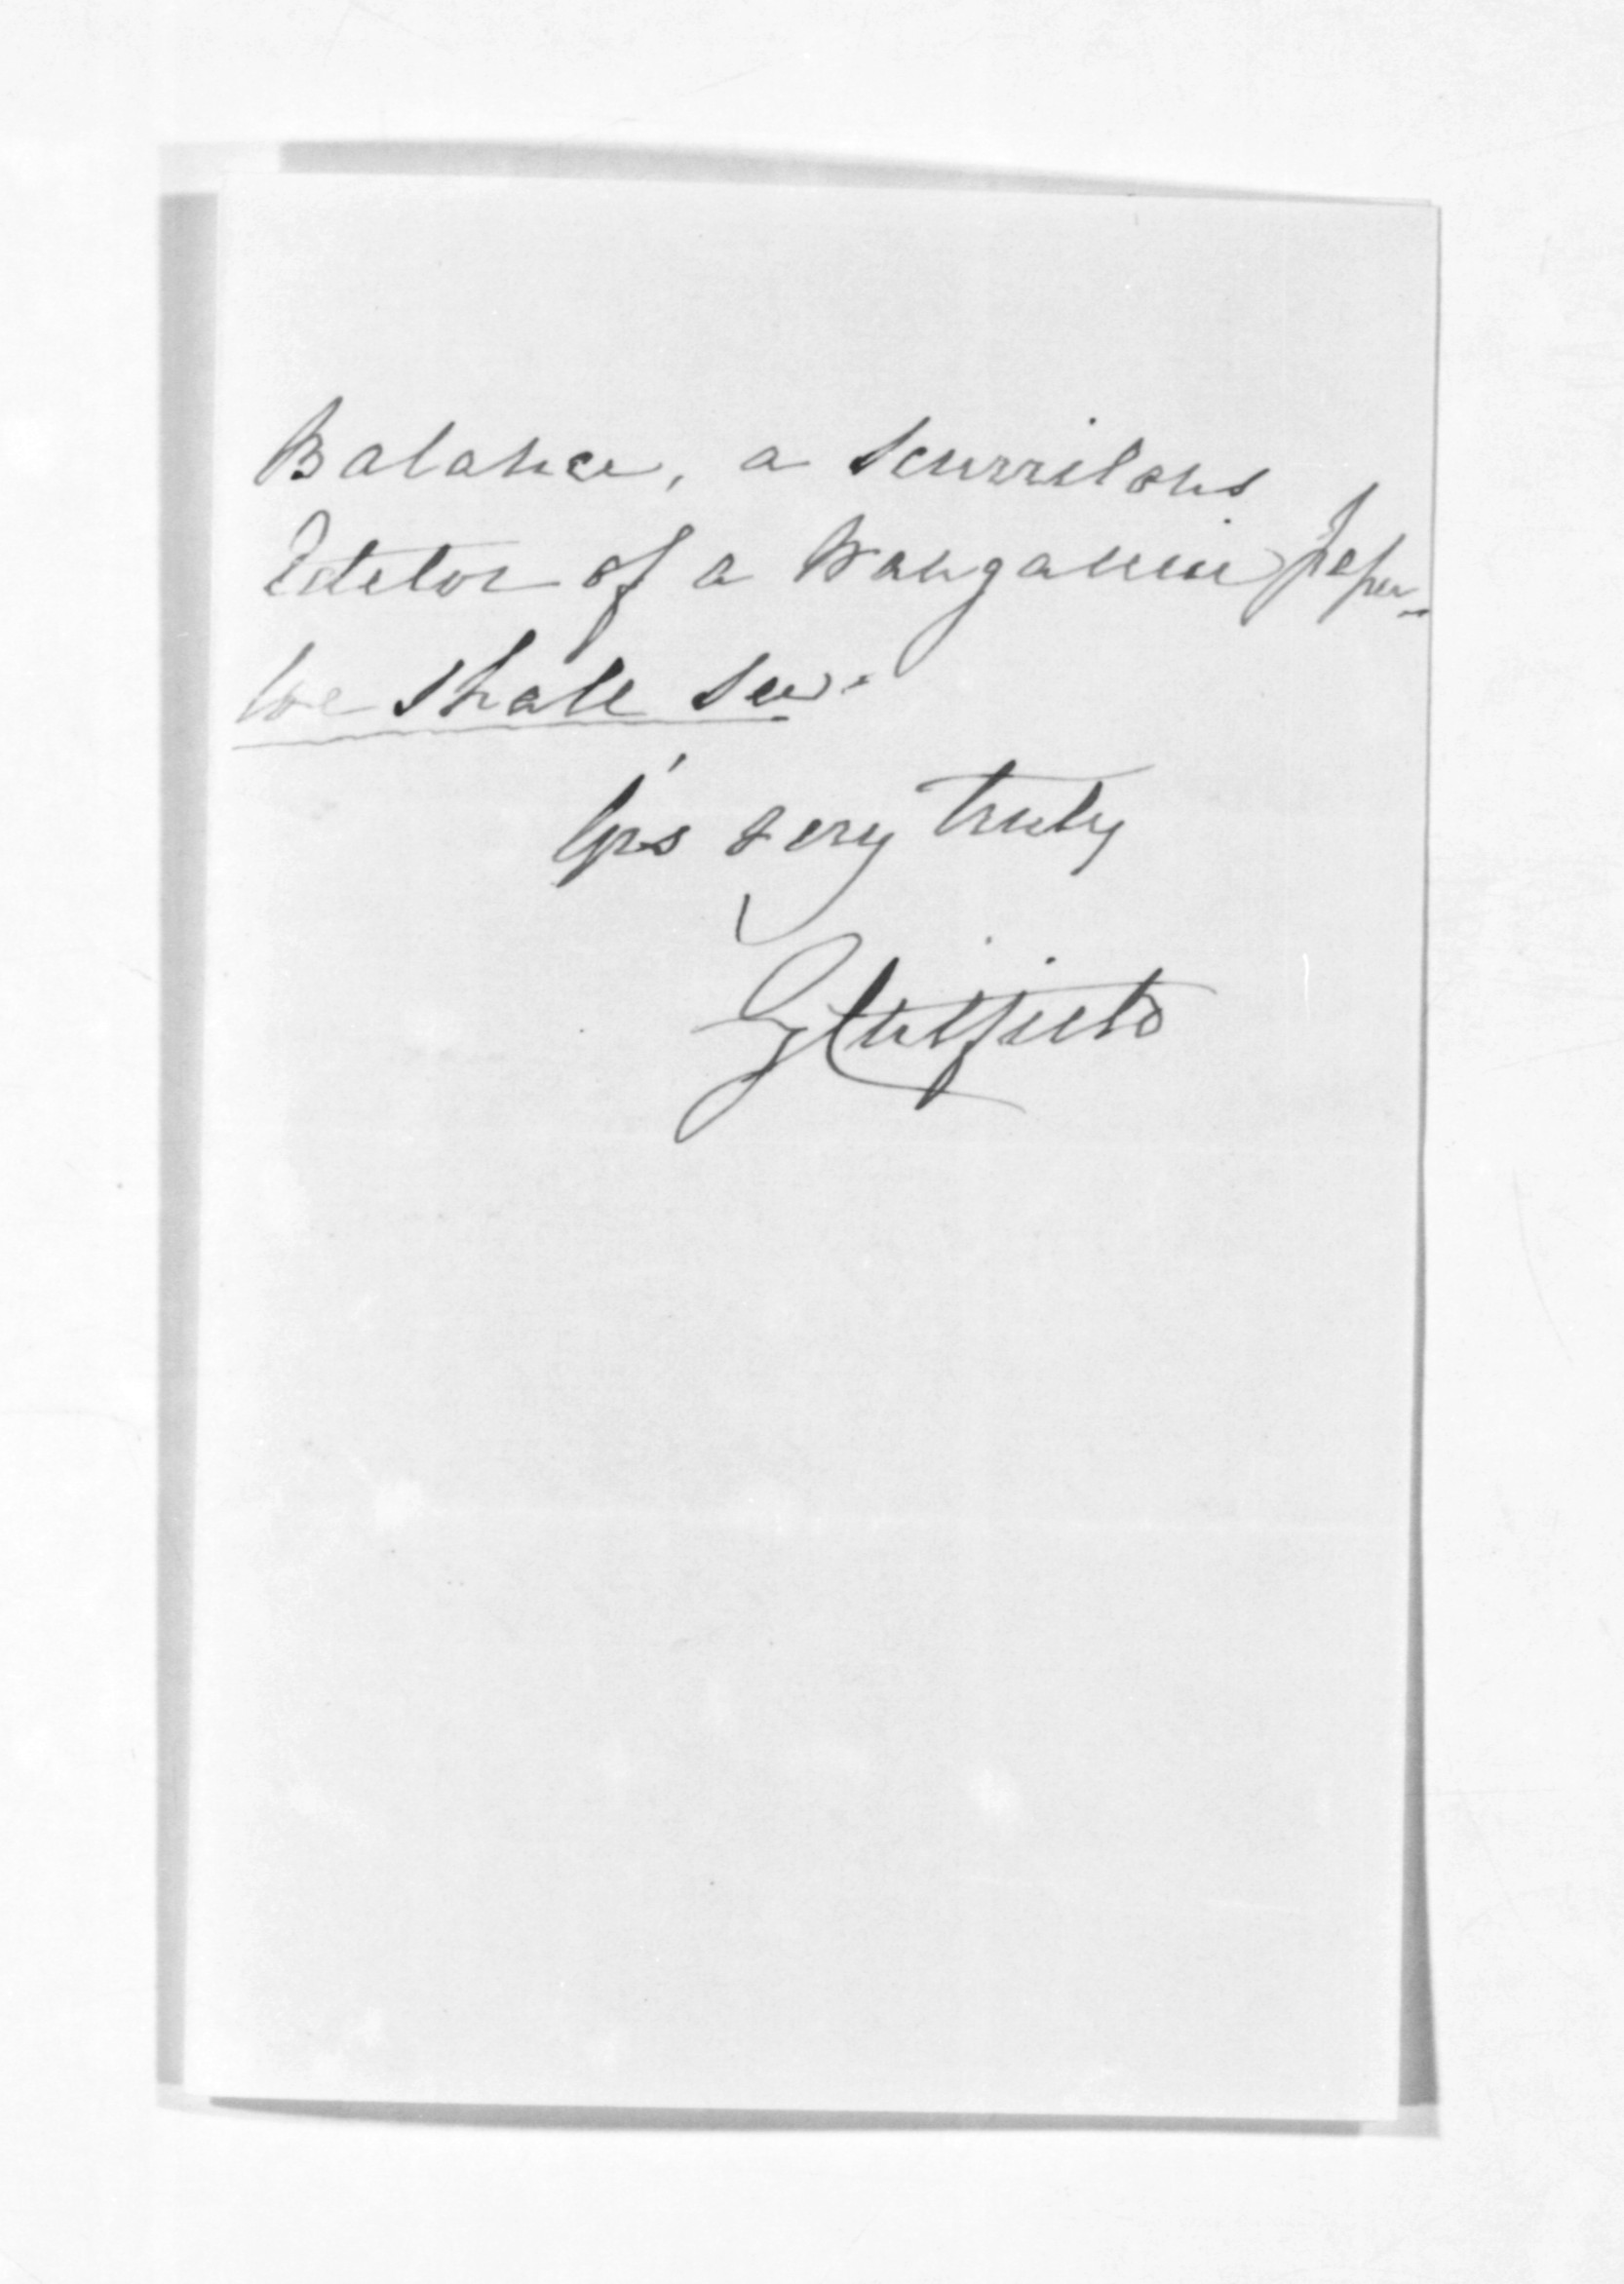 Balance, a scurrilous
Editor of a Wanganui paper -
we shall see.
Yrs very truly